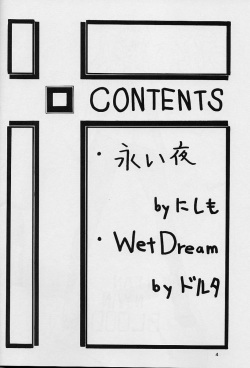 CONTENTS
・永い夜
by にしも
・Wet Dream
by ドルタ
4